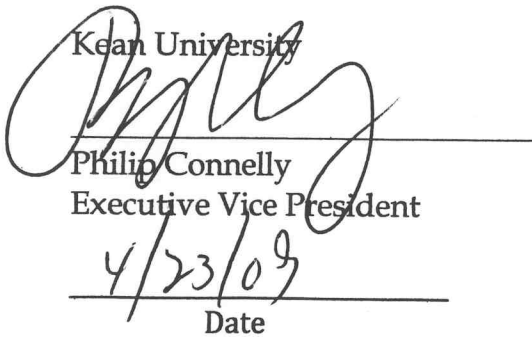 Kean University
Philip Connelly
Executive Vice President
4/23/09
Date